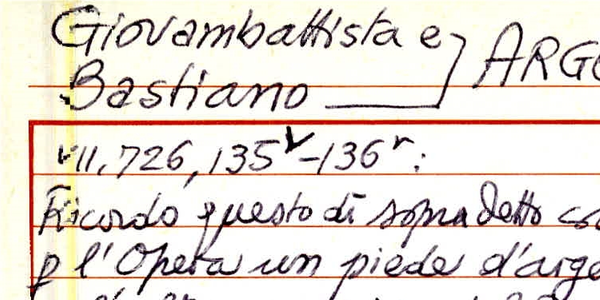 Giovambattista e
Bastiano ARGE
VII, 726, 135v-136r:
Ricordo questo dì sopradetto co
p l'Opera un piede d'arge